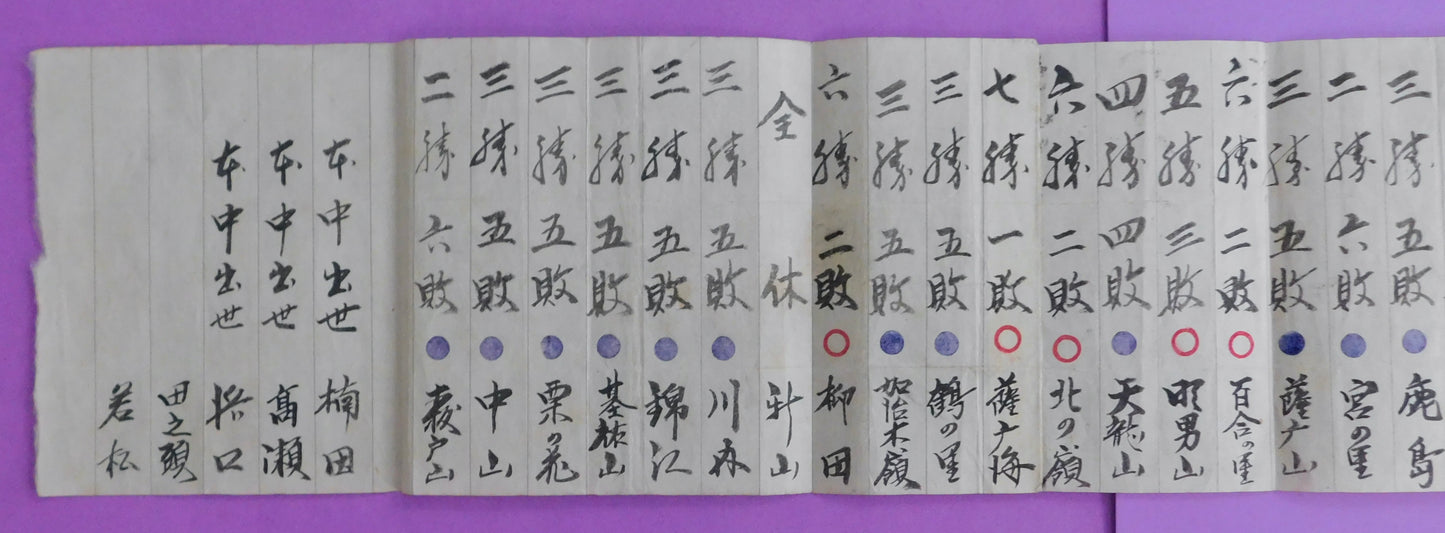 三勝五敗 鹿島
二勝六敗 宮の里
三勝五敗 薩ナ山
六勝二敗 百合の里
五勝三敗 明男山
四勝四敗 天龍山
六勝二敗 北の嶺
七勝一敗 薩ナ海
三勝五敗 鶴の里
三勝五敗 加治木嶺
六勝二敗 柳田
全休 新山
三勝五敗 川内
三勝五敗 錦江
三勝五敗 山
三勝五敗 栗の花
三勝五敗 中山
二勝六敗 山
本中出世 楠田
本中出世 髙瀬
本中出世 口
田之頭
若松